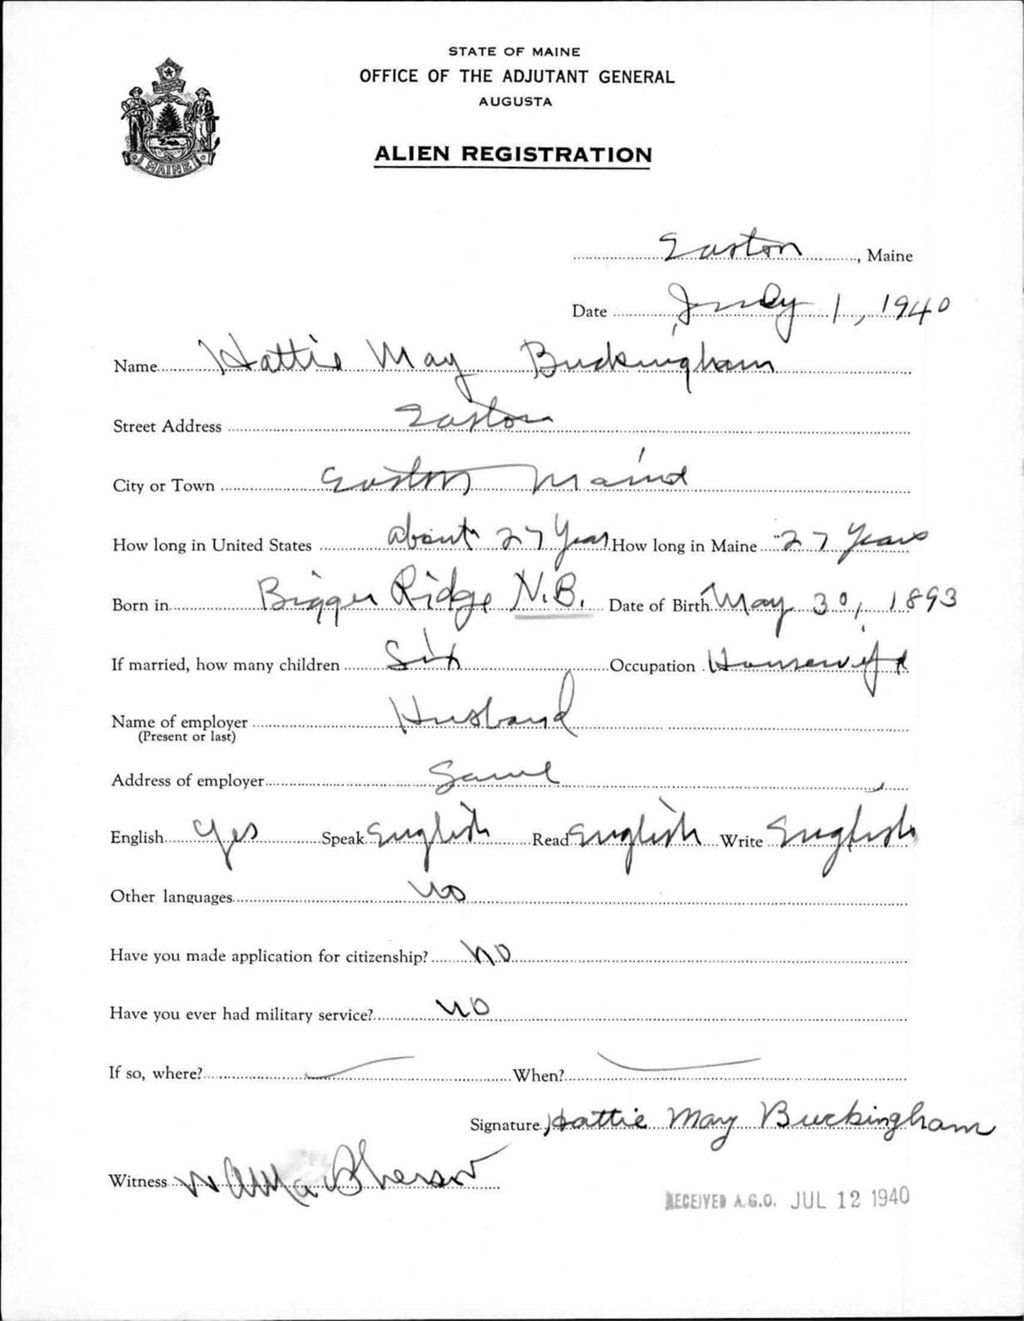 STATE OF MAINE
OFFICE OF THE ADJUTANT GENERAL
AUGUSTA
ALIEN REGISTRATION
MAINE
Easton, Maine
Date July 1, 1940
Name Hattie May Buckingham
Street Address Easton
City or Town Easton Maine
How long in United States about 27 Years How long in Maine 27 Years
Born in Bigger Ridge N.B. Date of Birth May 30, 1893
If married, how many children Six Occupation Housewife
Name of employer Husband
(Present or last)
Address of employer Same
English Yes Speak English Read English Write English
Other languages no
Have you made application for citizenship? no
Have you ever had military service? no
If so, where? When?
Signature Hattie May Buckingham
Witness
RECEIVED A.G.O. JUL 12 1940